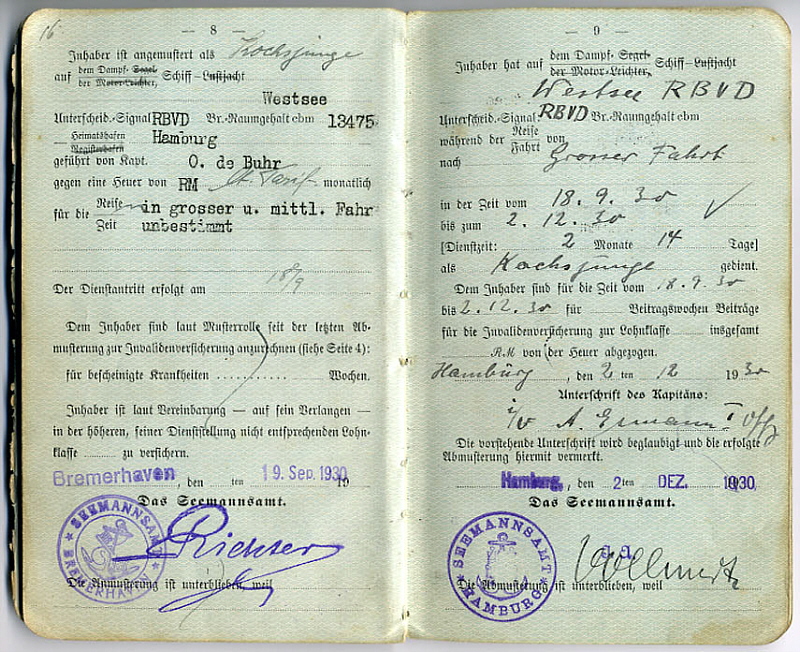 16
— 8 —
Inhaber ist angemustert als Kochsjunge
auf dem Dampf- Segel- der Motor-Leichter, Schiff - Lustjacht
Westsee
Unterscheid.-Signal RBVD Br.-Raumgehalt cbm 13475
Heimatshafen Registerhafen Hamburg
geführt von Kapt. O. de Buhr
gegen eine Heuer von RM lt. Tarif monatlich
für die Reise Zeit in grosser u. mittl. Fahr
unbestimmt
Der Dienstantritt erfolgt am 18/9
Dem Inhaber sind laut Musterrolle seit der letzten Ab-
musterung zur Invalidenversicherung anzurechnen (siehe Seite 4):
für bescheinigte Krankheiten .......... Wochen.
Inhaber ist laut Vereinbarung — auf sein Verlangen —
in der höheren, seiner Dienststellung nicht entsprechenden Lohn-
klasse ........ zu versichern.
Bremerhaven, den ten 19. Sep. 1930 19
Das Seemannsamt.
Richter
SEEMANNSAMT BREMERHAVEN
Die Anmusterung ist unterblieben, weil
— 9 —
Inhaber hat auf dem Dampf- Segel- der Motor-Leichter, Schiff - Lustjacht
Westsee RBVD
Unterscheid.-Signal RBVD Br.-Raumgehalt cbm
während der Reise Fahrt von
nach Grosser Fahrt
in der Zeit vom 18. 9. 30
bis zum 2. 12. 30
[Dienstzeit: 2 Monate 14 Tage]
als Kochsjunge gedient.
Dem Inhaber sind für die Zeit vom 18. 9. 30
bis 2. 12. 30 für Beitragswochen Beiträge
für die Invalidenversicherung zur Lohnklasse insgesamt
RM von der Heuer abgezogen.
Hamburg, den 2 ten 12 1930
Unterschrift des Kapitäns:
i/v A. I Off
Die vorstehende Unterschrift wird beglaubigt und die erfolgte
Abmusterung hiermit vermerkt.
Hamburg, den 2ten DEZ. 1930
Das Seemannsamt.
SEEMANNSAMT HAMBURG
Die Abmusterung ist unterblieben, weil